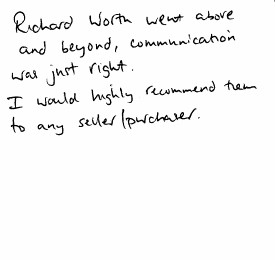 Richard Worth went above
and beyond, communication
was just right.
I would highly recommend them
to any seller/purchaser.